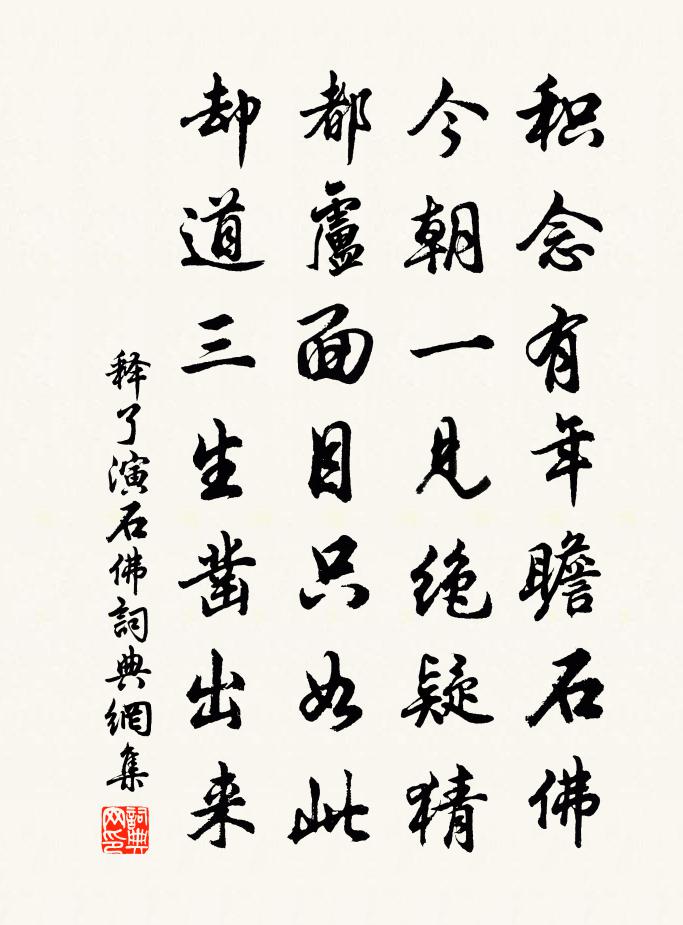 积念有年瞻石佛
今朝一见绝疑猜
都盧面目只如此
却道三生凿出来
释了演石佛詞典網集
詞典网印